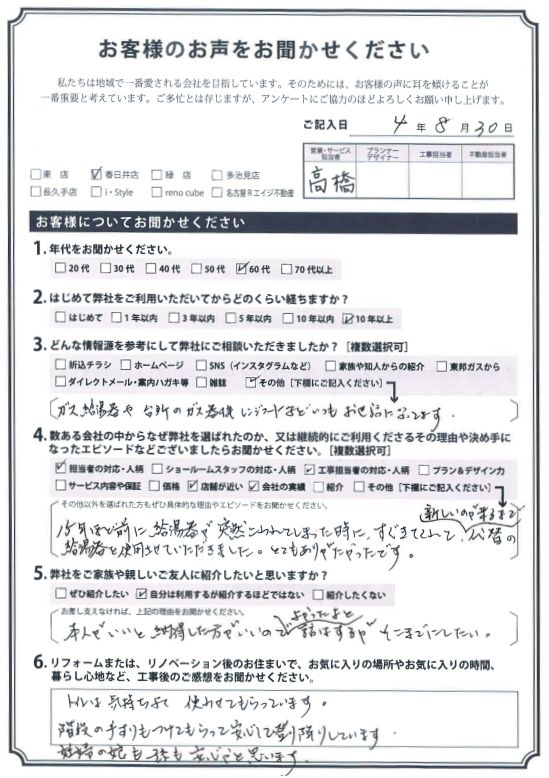 お客様のお声をお聞かせください
私たちは地域で一番愛される会社を目指しています。そのためには、お客様の声に耳を傾けることが
一番重要と考えています。ご多忙とは存じますが、アンケートにご協力のほどよろしくお願い申し上げます。
ご記入日 4 年 8 月 30 日
営業・サービス担当者 プランナーデザイナー 工事担当者 不動産担当者
高橋
□東 店 ☑春日井店 □緑 店 □多治見店
□長久手店 □i・Style □reno cube □名古屋Rエイジ不動産
お客様についてお聞かせください
1. 年代をお聞かせください。
□20代 □30代 □40代 □50代 ☑60代 □70代以上
2. はじめて弊社をご利用いただいてからどのくらい経ちますか?
□はじめて □1年以内 □3年以内 □5年以内 □10年以内 ☑10年以上
3. どんな情報源を参考にして弊社にご相談いただきましたか?[複数選択可]
□折込チラシ □ホームページ □SNS(インスタグラムなど) □家族や知人からの紹介 □東邦ガスから
□ダイレクトメール・案内ハガキ等 □雑誌 ☑その他[下欄にご記入ください]
ガス給湯器や台所のガス器機 レンジフードなどいつもお世話になってます.
4. 数ある会社の中からなぜ弊社を選ばれたのか、又は継続的にご利用くださるその理由や決め手に
なったエピソードなどございましたらお聞かせください。[複数選択可]
☑担当者の対応・人柄 □ショールームスタッフの対応・人柄 ☑工事担当者の対応・人柄 □プラン&デザイン力
□サービス内容や保証 □価格 ☑店舗が近い ☑会社の実績 □紹介 □その他[下欄にご記入ください]
その他以外を選ばれた方もぜひ具体的な理由やエピソードをお聞かせください。
新しいのが来るまで
15年ほど前に給湯器が突然こわれてしまった時に、すぐきてくれて、代替の
給湯器を使用させていただきました。とてもありがたかったです。
5. 弊社をご家族や親しいご友人に紹介したいと思いますか?
□ぜひ紹介したい ☑自分は利用するが紹介するほどではない □紹介したくない
お差し支えなければ、上記の理由をお聞かせください。
よかったよと
本人がいいと納得した方がいいので 話はするが そこまでにしたい。
6. リフォームまたは、リノベーション後のお住まいで、お気に入りの場所やお気に入りの時間、
暮らし心地など、工事後のご感想をお聞かせください。
トイレは気持ちよく使わせてもらっています。
階段の手すりもつけてもらって安心して登り降りしています.
妊婦の娘も 孫も 安心やと思います.